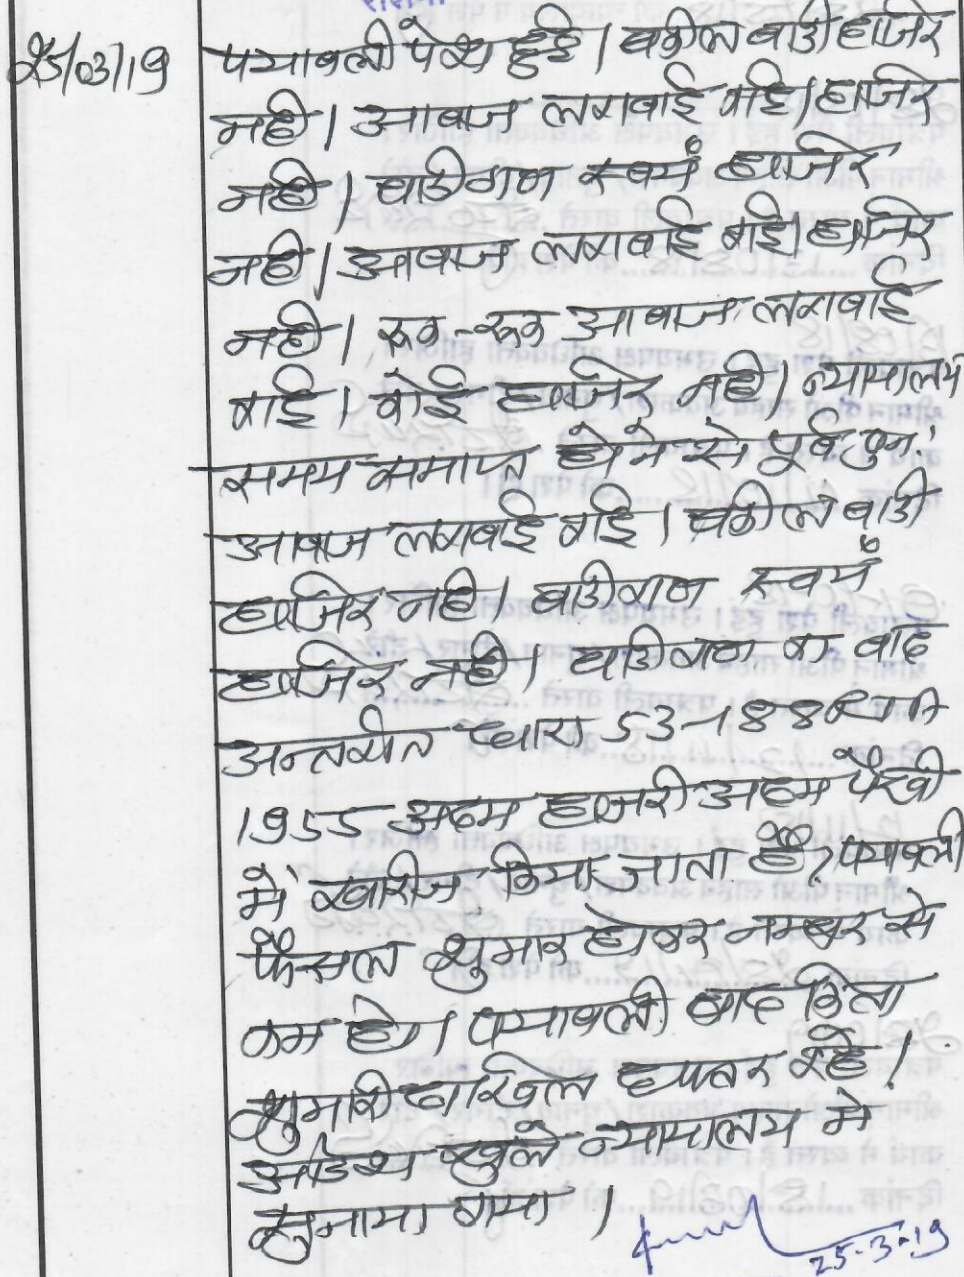 25/03/19
पत्रावली पेश हुई। वकील वादी हाजिर
नहीं। आवाज लगवाई गई। हाजिर
नहीं। वादीगण स्वयं हाजिर
नहीं। आवाज लगवाई गई। हाजिर
नहीं। रूक-रूक आवाज लगवाई
गई। कोई हाजिर नहीं। न्यायालय
समय समाप्त होने से पूर्व पुनः
आवाज लगवाई गई। वकील वादी
हाजिर नहीं। वादीगण स्वयं
हाजिर नहीं। वादीगण का वाद
अन्तर्गत धारा 53-188
1955 अदम हाजरी अदम पैरवी
में खारीज किया जाता है। पत्रावली
फैसल शुमार होकर नम्बर से
कम हो। पत्रावली बाद
दाखिल दफ्तर रहे।
आदेश खुले न्यायालय में
सुनाया गया।
25-3-19